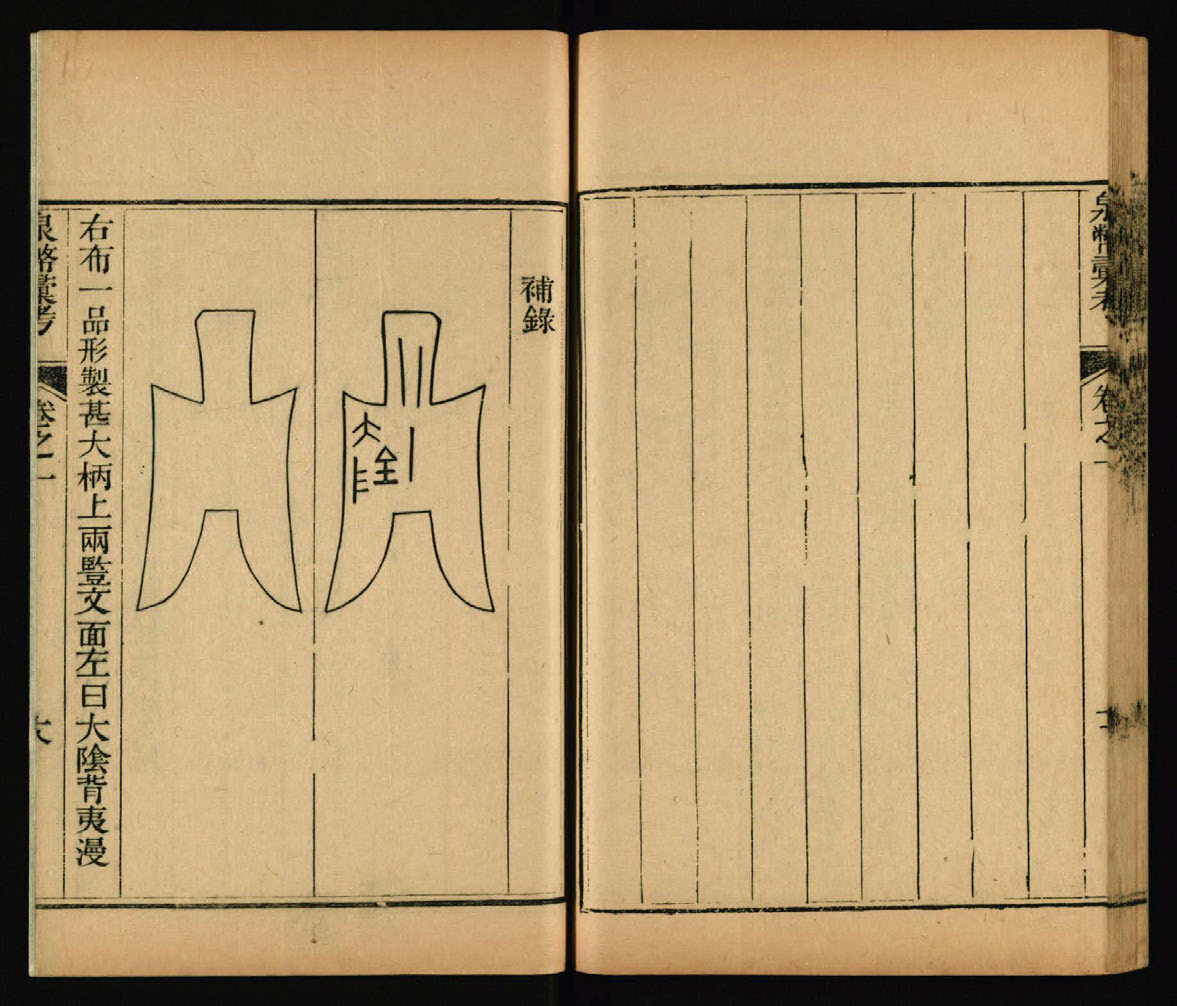 泉幣彙考
卷之一
補錄
大
右布一品形製甚大柄上兩豎文面左曰大陰背夷漫
泉幣彙考
卷之一